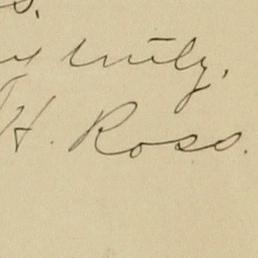 s.
y truly,
H. Ross.